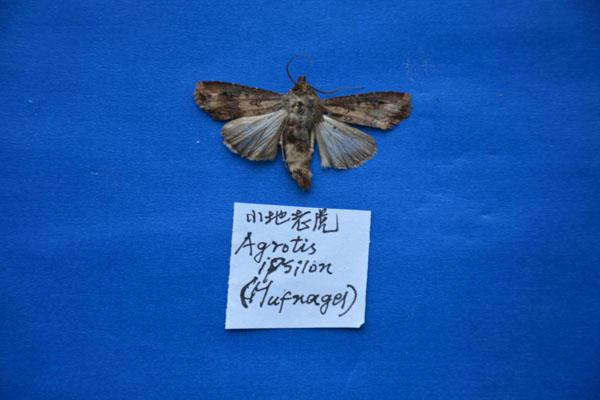 小地老虎
Agrotis
ipsilon
(Hufnagel)